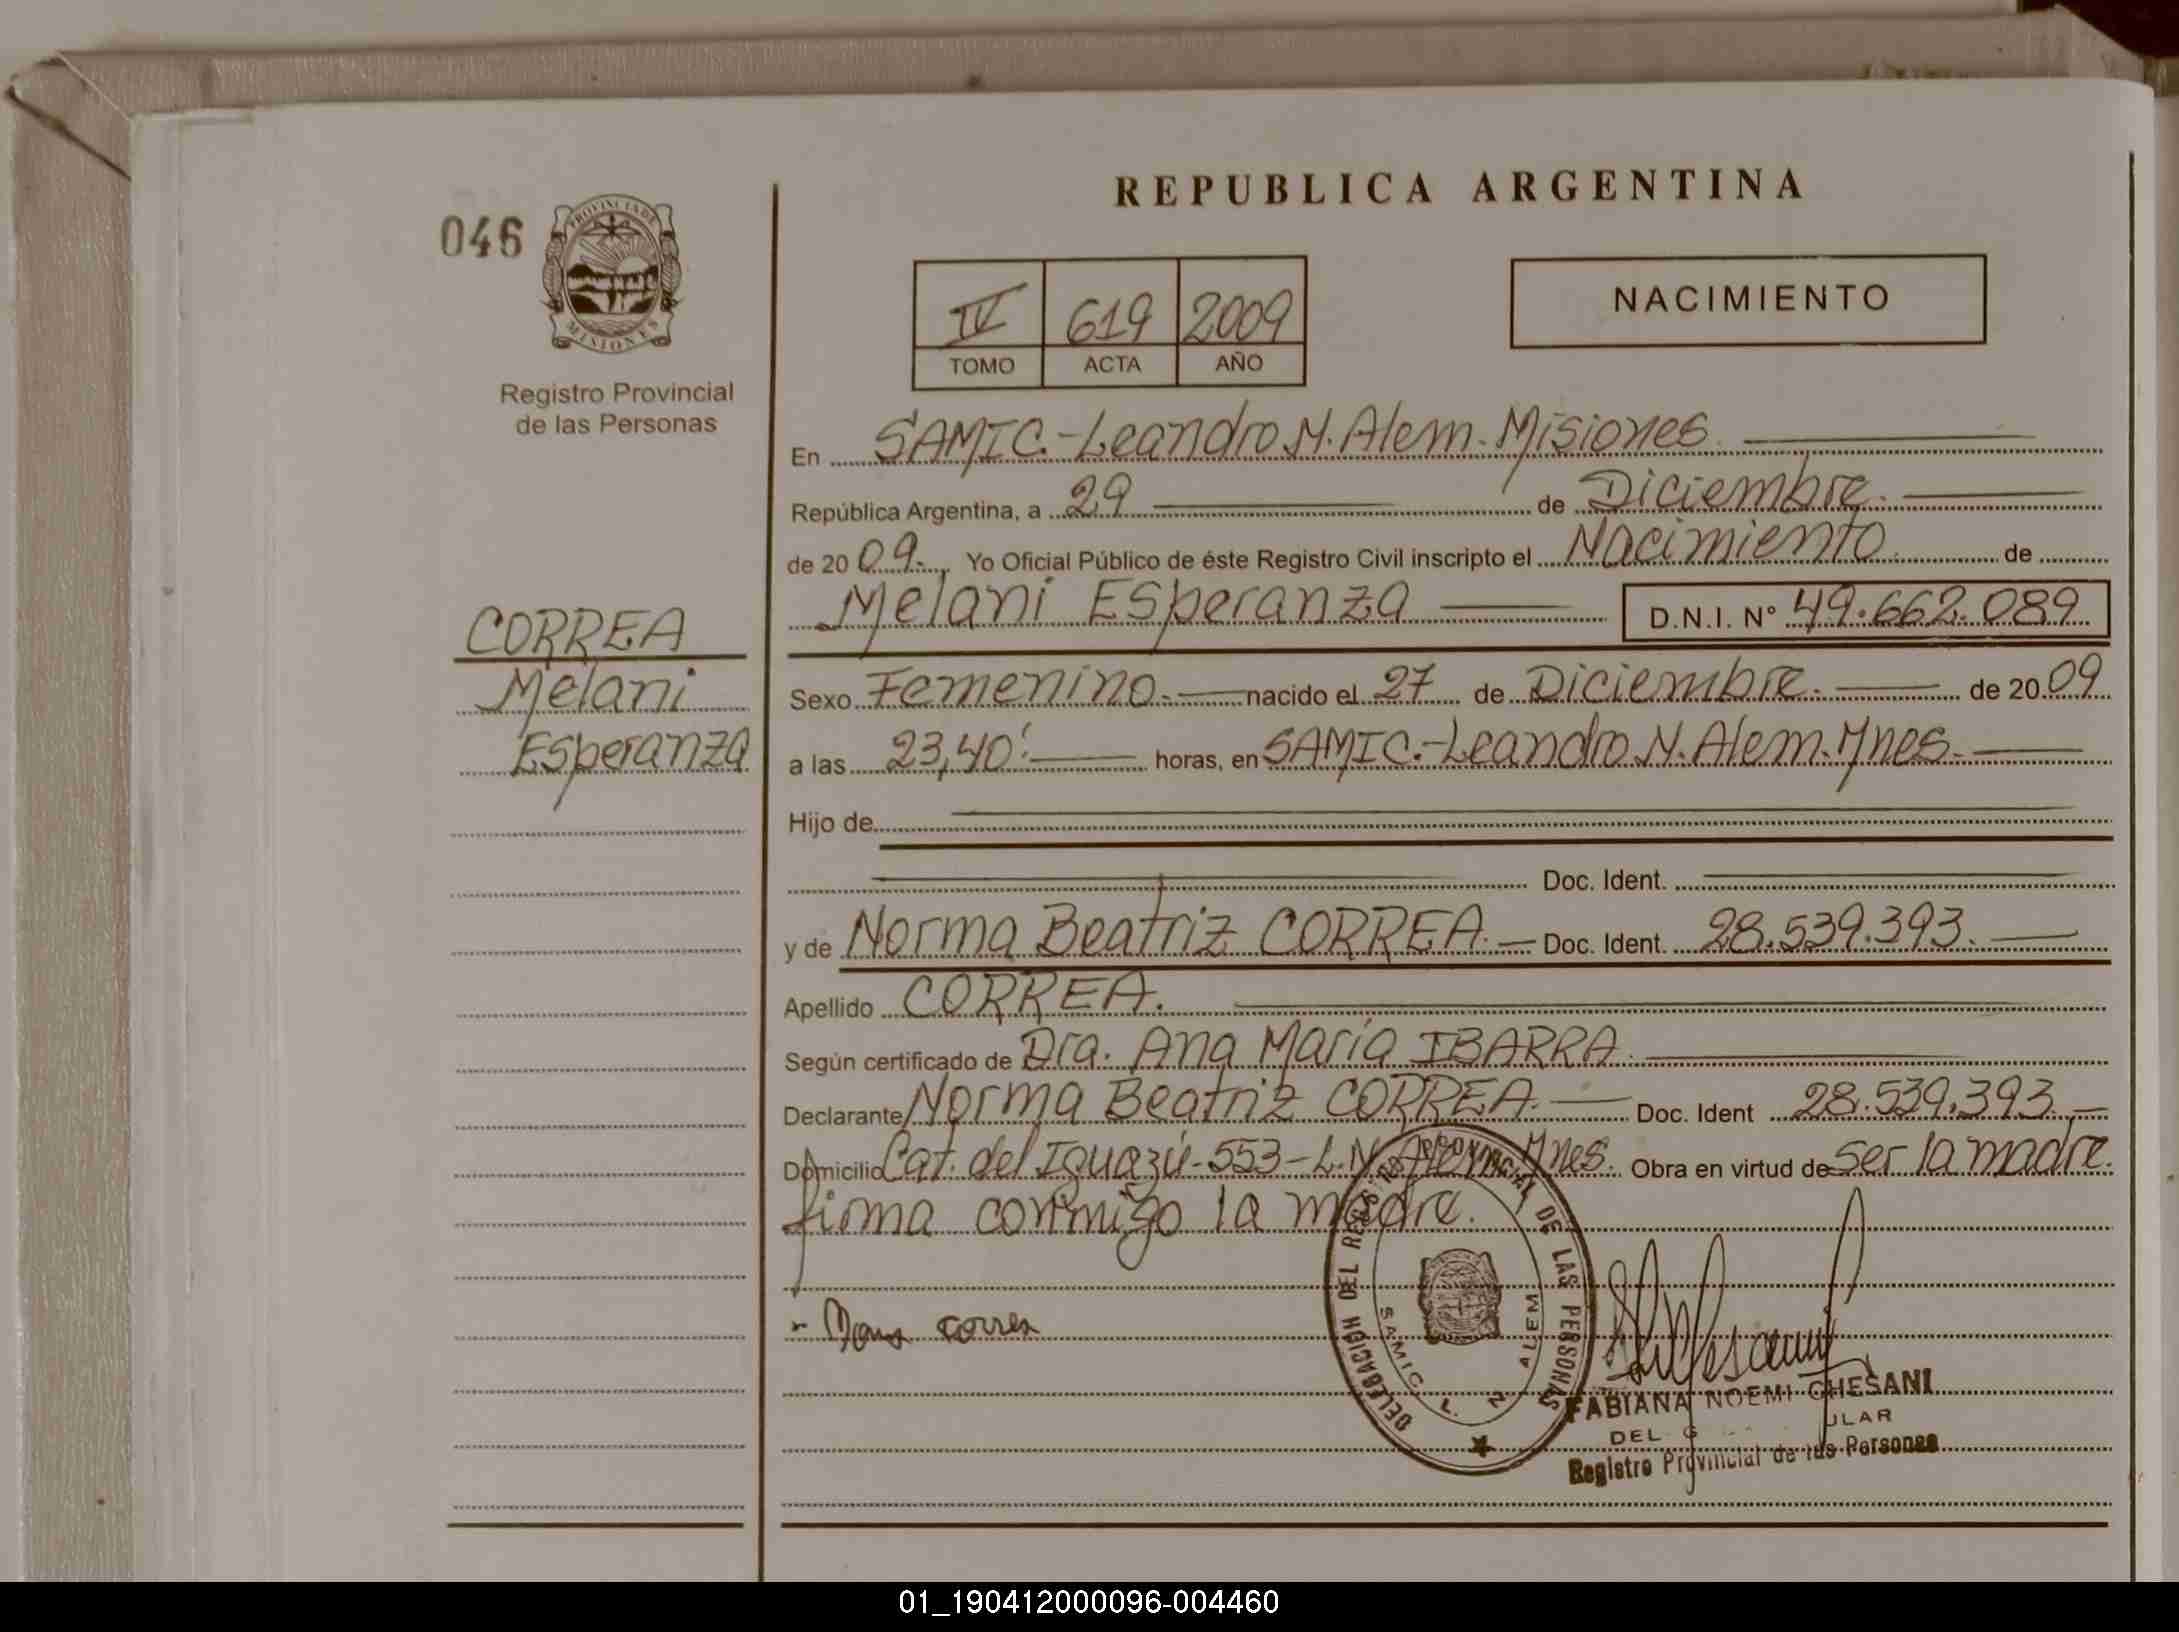 REPUBLICA ARGENTINA
046
PROVINCIA DE MISIONES
Registro Provincial
de las Personas
IV 619 2009
TOMO ACTA AÑO
NACIMIENTO
En SAMIC.-Leandro N. Alem. Misiones.
República Argentina, a 29 de Diciembre.
de 2009. Yo Oficial Público de éste Registro Civil inscripto el Nacimiento de
Melani Esperanza D.N.I. N° 49.662.089
CORREA
Melani
Esperanza
Sexo Femenino. nacido el 27 de Diciembre. de 2009
a las 23,40' horas, en SAMIC.-Leandro N. Alem. Mnes.
Hijo de
Doc. Ident.
y de Norma Beatriz CORREA. Doc. Ident. 28.539.393.
Apellido CORREA.
Según certificado de Dra. Ana María IBARRA.
Declarante Norma Beatriz CORREA. Doc. Ident 28.539.393
Domicilio Cat. del Iguazú-553-L.N. Alem. Mnes. Obra en virtud de Ser la madre.
firma conmigo la madre.
correa
DELEGACION DEL REGISTRO PROVINCIAL DE LAS PERSONAS
SAMIC L. N. ALEM
FABIANA NOEMI GHESANI
Registro Provincial de las Personas
01_190412000096-004460